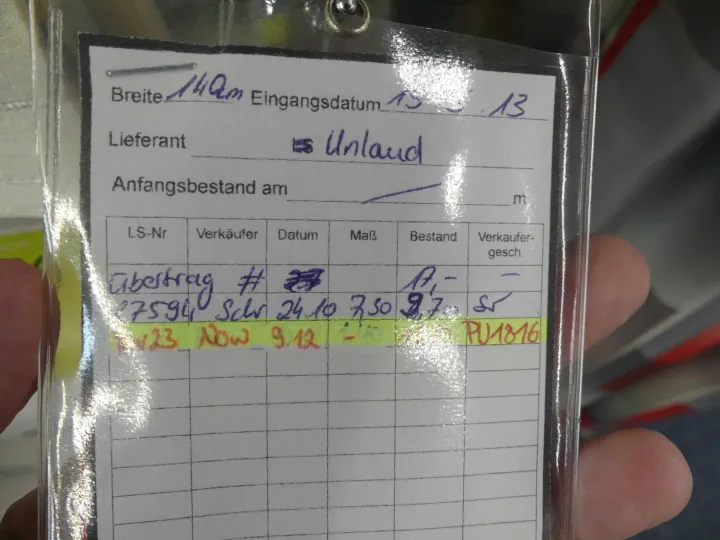 Breite 140cm Eingangsdatum 13
Lieferant Unland
Anfangsbestand am m
LS-Nr Verkäufer Datum Maß Bestand Verkaufer-gesch.
Übertrag # 17,- -
27594 Schr 24.10 7,50 9,70 Sr
23 Now 9.12 - PU1816